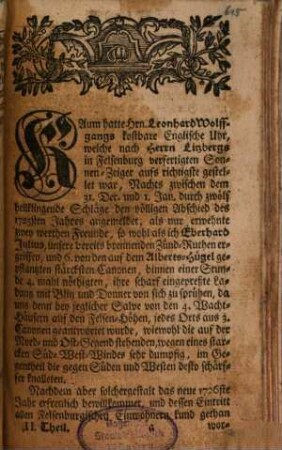 KAum hatte Hrn. Leonhard Wolff-
gangs kostbare Englische Uhr,
welche nach Herrn Litzbergs
in Felsenburg verfertigten Son-
nen-Zeiger aufs richtigste gestel-
let war, Nachts zwischen dem
31. Dec. und 1. Jan. durch zwölf
hellklingende Schläge den völligen Abschied des
1725sten Jahres angemeldet, als nur erwehnte
zwey werthen Freunde, so wohl als ich Eberhard
Julius, unsere bereits brennenden Zünd-Ruthen er-
griffen, und 6. von den auf dem Alberts-Hügel ge-
pflantzten stärcksten Canonen, binnen einer Stun-
de 4. mahl nöthigten, ihre scharf eingepreßte La-
dung mit Blitz und Donner von sich zu sprühen, da
uns denn bey jeglicher Salve von den 4. Wacht-
Häusern auf den Felsen-Höhen, jedes Orts aus 3.
Canonen geantwortet wurde, wiewohl die auf der
Nord- und Ost-Gegend stehenden, wegen eines star-
cken Süd-West-Windes sehr dumpfig, im Ge-
gentheil die gegen Süden und Westen desto schärf-
fer knalleten.
Nachdem aber solchergestalt das neue 1726ste
Jahr erfreulich bewillkommet, und dessen Eintritt
allen Felsenburgischen Einwohnern kund gethan
II. Theil. a wor-